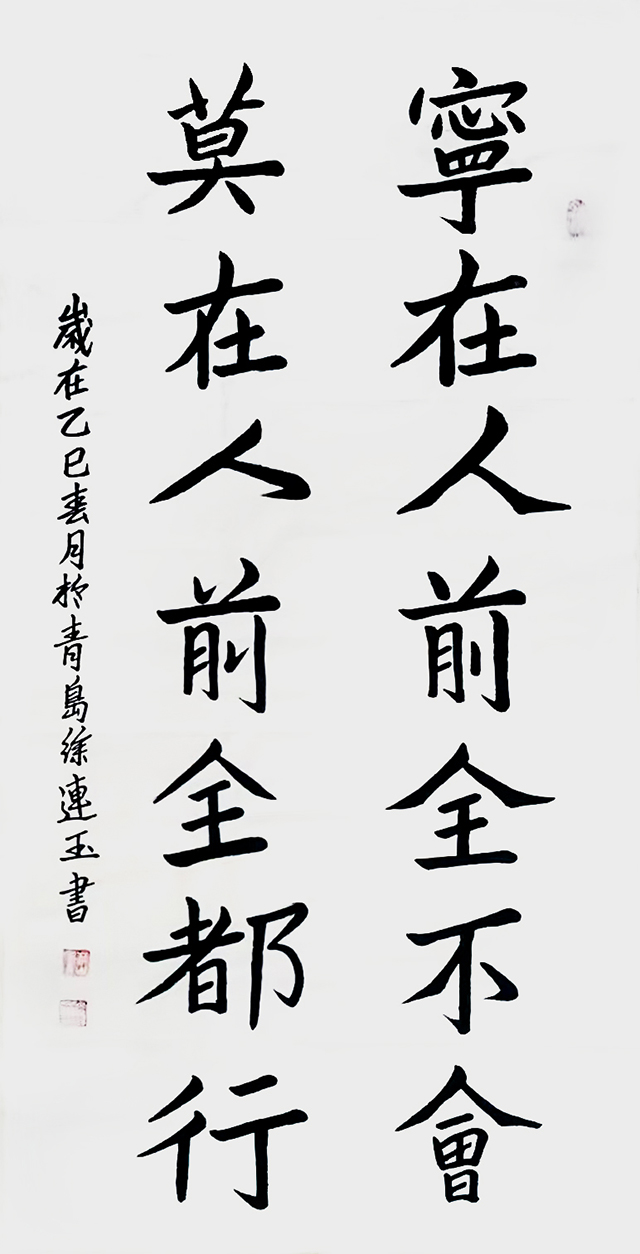 寧在人前全不會
莫在人前全都行
歲在乙巳春月於青島徐連玉書